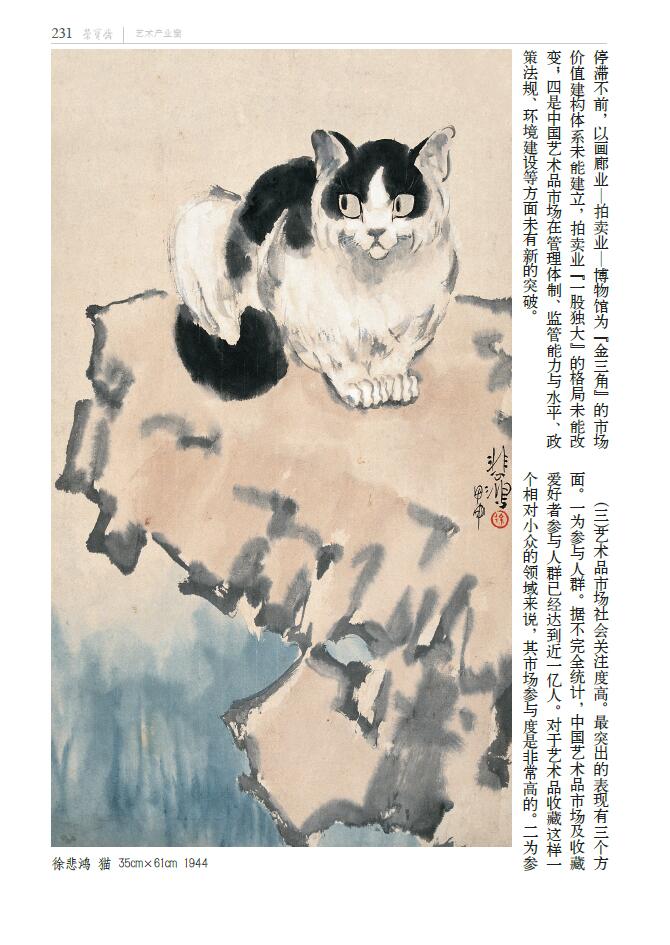 231 荣宝斋 艺术产业窗
停滞不前，以画廊业—拍卖业—博物馆为『金三角』的市场
价值建构体系未能建立，拍卖业『一股独大』的格局未能改
变，四是中国艺术品市场在管理体制、监管能力与水平、政
策法规、环境建设等方面未有新的突破。
（三）艺术品市场社会关注度高。最突出的表现有三个方
面。一为参与人群。据不完全统计，中国艺术品市场及收藏
爱好者参与人群已经达到近一亿人。对于艺术品收藏这样一
个相对小众的领域来说，其市场参与度是非常高的。二为参
悲鸿
甲申
徐悲鸿 猫 35cm×61cm 1944